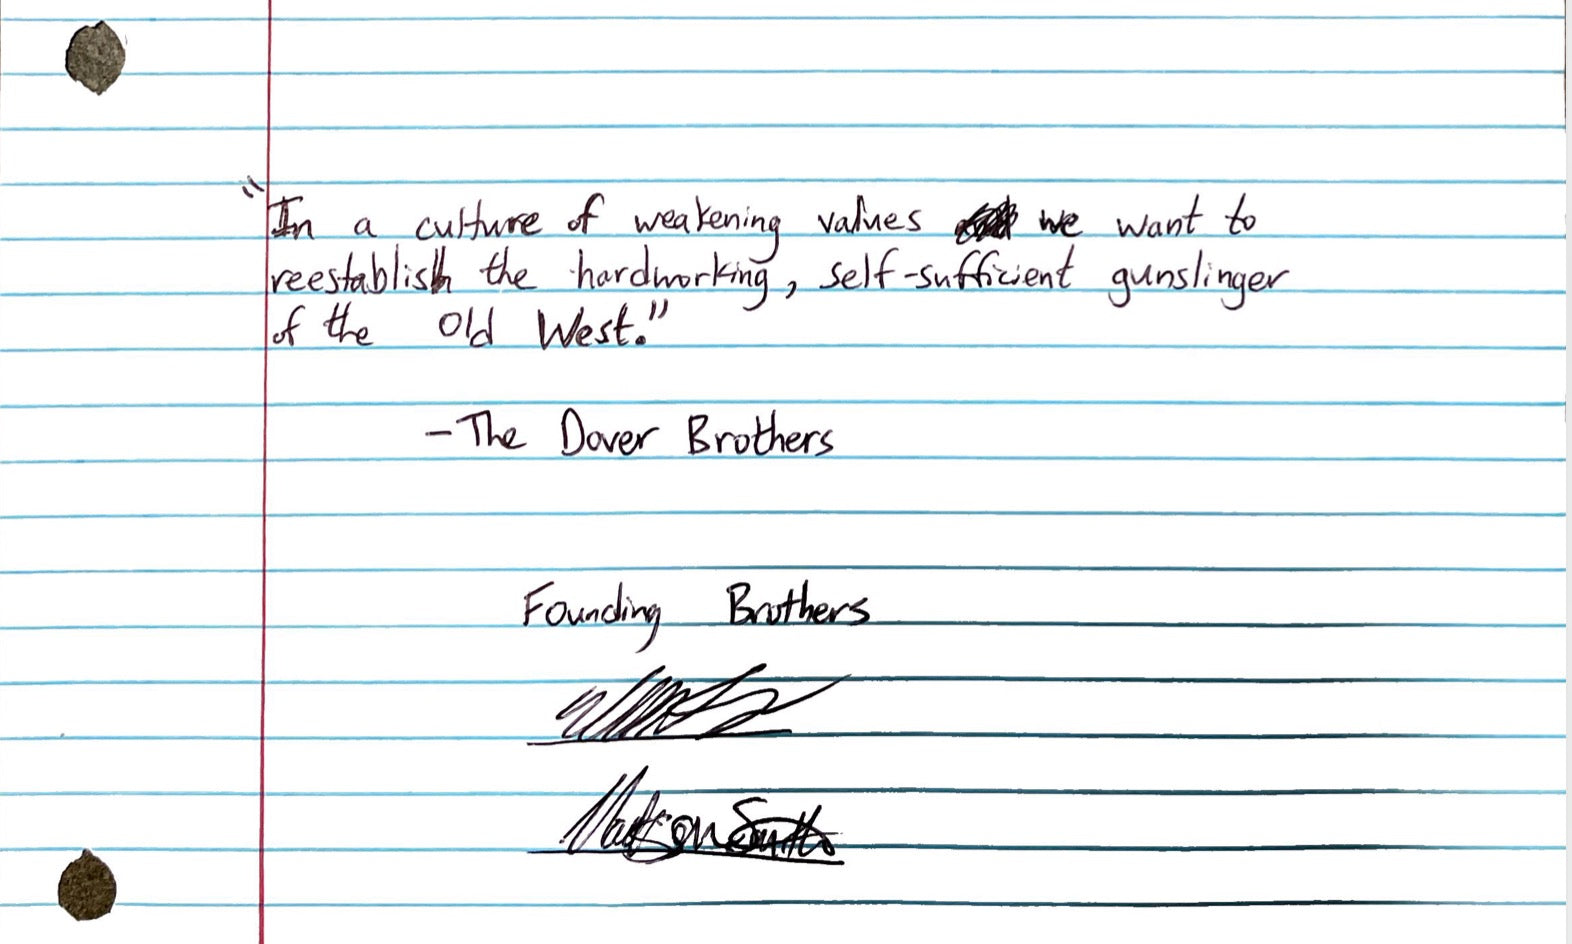 "In a culture of weakening values we want to
reestablish the hardworking, self-sufficient gunslinger
of the Old West."
-The Dover Brothers
Founding Brothers
Smith